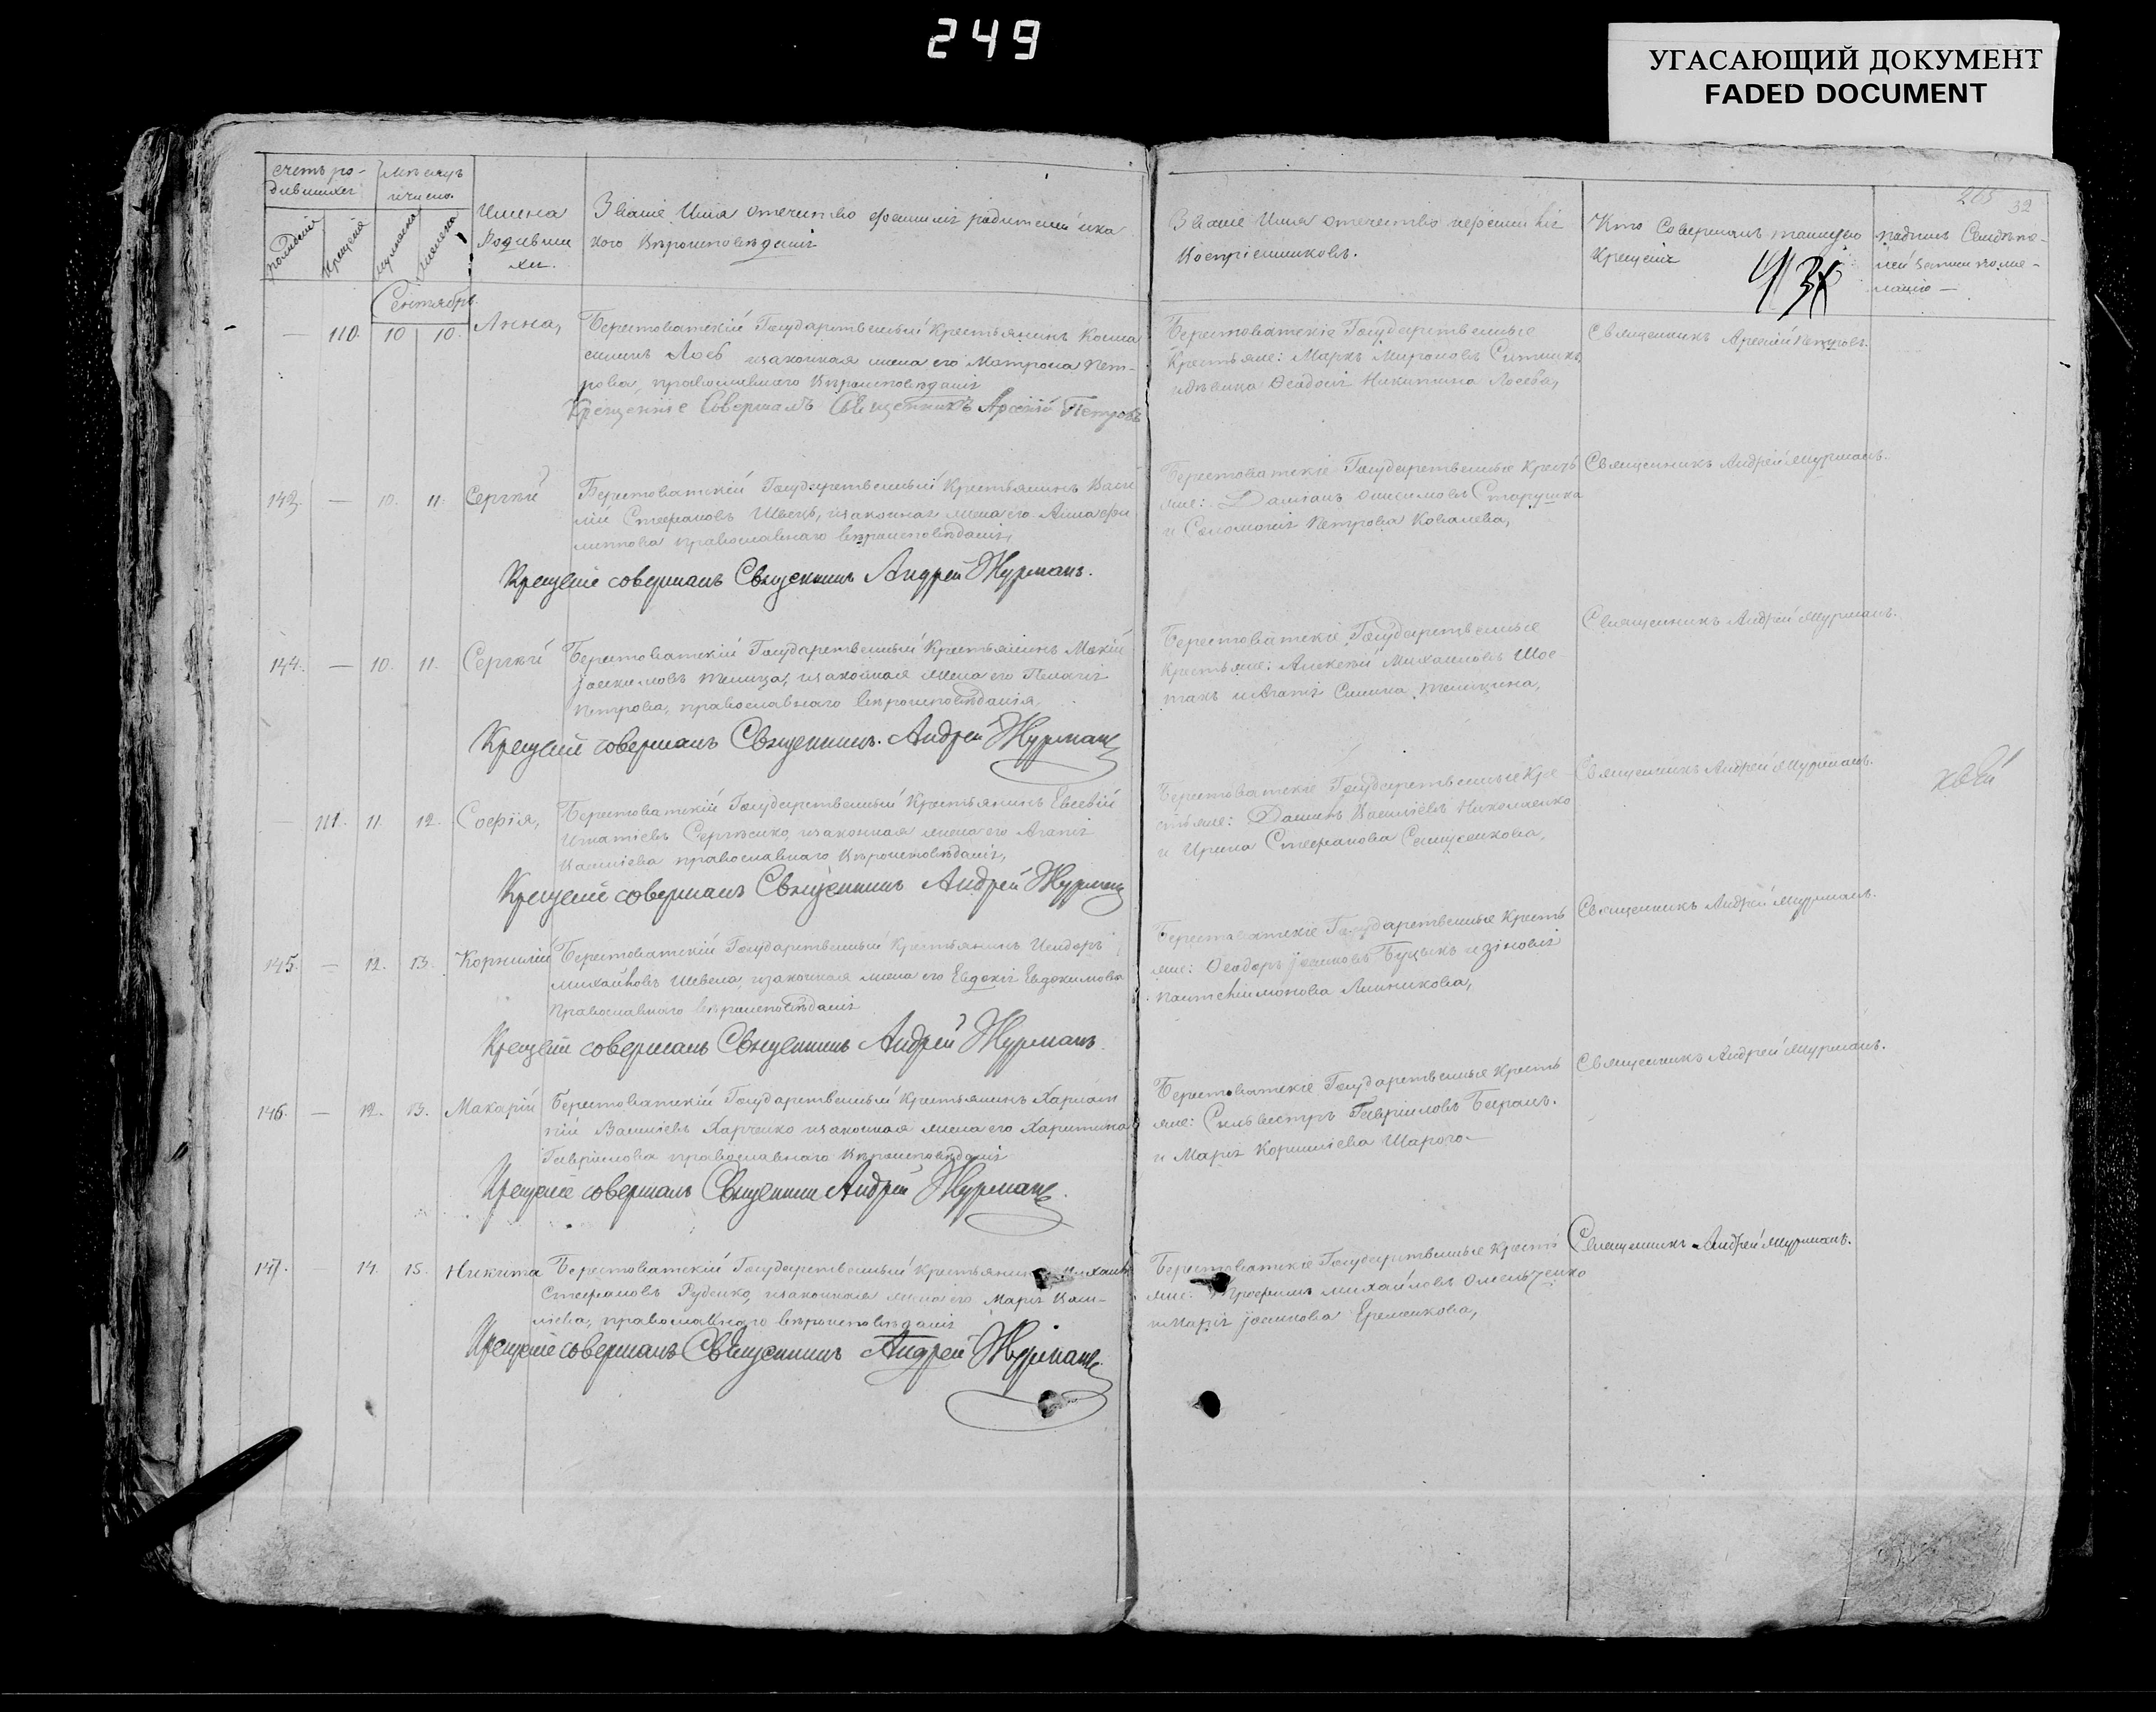 249
УГАСАЮЩИЙ ДОКУМЕНТ
FADED DOCUMENT
265 32
счетъ ро-
дившихся
мѣсяцъ
и число.
Имена
Родивши
хся.
Званіе Имя отечество фамилія родителей и ка
кого вѣроисповѣданія
Званіе Имя отечество и фамилія
Воспріемниковъ.
Кто совершалъ таинство
Крещенія
Сентябрь
— 110. 10 10. Анна,
Берестоватскій Государственный Крестьянинъ Косма
законная жена его Матрона Пет-
рова, православнаго вѣроисповѣданія
Крещеніе совершалъ Священникъ Арсеній Петровъ
Берестоватскіе Государственные
Крестьяне: Маркъ Мироновъ Ситникъ
и дѣвица Ѳеодосія Никитина Лосева,
Священникъ Арсеній Петровъ.
143. — 10. 11. Сергѣй
Берестоватскій Государственный Крестьянинъ Васи
лій Стефановъ Швецъ, и законная жена его Анна Фи
липпова православнаго вѣроисповѣданія,
Крещеніе совершалъ Священникъ Андрей Журманъ.
Берестоватскіе Государственные Кресть
яне: Даміанъ Онисимовъ Старушка
и Соломонія Петрова Ковалева,
Священникъ Андрей Журманъ.
144. — 10. 11. Сергѣй
Берестоватскій Государственный Крестьянинъ Мокій
Іоакимовъ Телица, и законная жена его Пелагія
Петрова, православнаго вѣроисповѣданія,
Крещеніе совершалъ Священникъ. Андрей Журманъ
Берестоватскіе Государственные
Крестьяне: Алексѣй Михаиловъ Шос-
такъ и Агапія Телицина,
Священникъ Андрей Журманъ.
— 111. 11. 12. София,
Берестоватскій Государственный Крестьянинъ Евсевій
Игнатіевъ Сергѣенко, и законная жена его Агапія
Василіева православнаго вѣроисповѣданія,
Крещеніе совершалъ Священникъ Андрей Журманъ
Берестоватскіе Государственные Кре
стьяне: Даніилъ Василіевъ Николаенко
и Ирина Стефанова
Священникъ Андрей Журманъ.
145. — 12. 13. Корнилій
Берестоватскій Государственный Крестьянинъ Исидоръ
Михайловъ Шевела, и законная жена его Евдокія Евдокимова
Православнаго вѣроисповѣданія
Крещеніе совершалъ Священникъ Андрей Журманъ
Берестоватскіе Государственные Кресть
яне: Ѳеодоръ Іоанновъ Буцыкъ и Зіновія
Пантелеимонова
Священникъ Андрей Журманъ.
146. — 12. 13. Макарій
Берестоватскій Государственный Крестьянинъ Харлам
пій Василіевъ Харченко и законная жена его Харитина
Гавріилова православнаго вѣроисповѣданія
Крещеніе совершалъ Священникъ Андрей Журманъ.
Берестоватскіе Государственные Кресть
яне: Сильвестръ Гавріиловъ
и Марія Корниліева Шарого-
Священникъ Андрей Журманъ.
147. — 14. 15. Никита
Берестоватскій Государственный Крестьянинъ Михаилъ
Стефановъ Руденко, и законная жена его Марія Васи-
ліева, православнаго вѣроисповѣданія
Крещеніе совершалъ Священникъ Андрей Журманъ.
Берестоватскіе Государственные Кресть
яне: Трофимъ Михайловъ Омельченко
и Марія Іоаннова Еременкова,
Священникъ Андрей Журманъ.